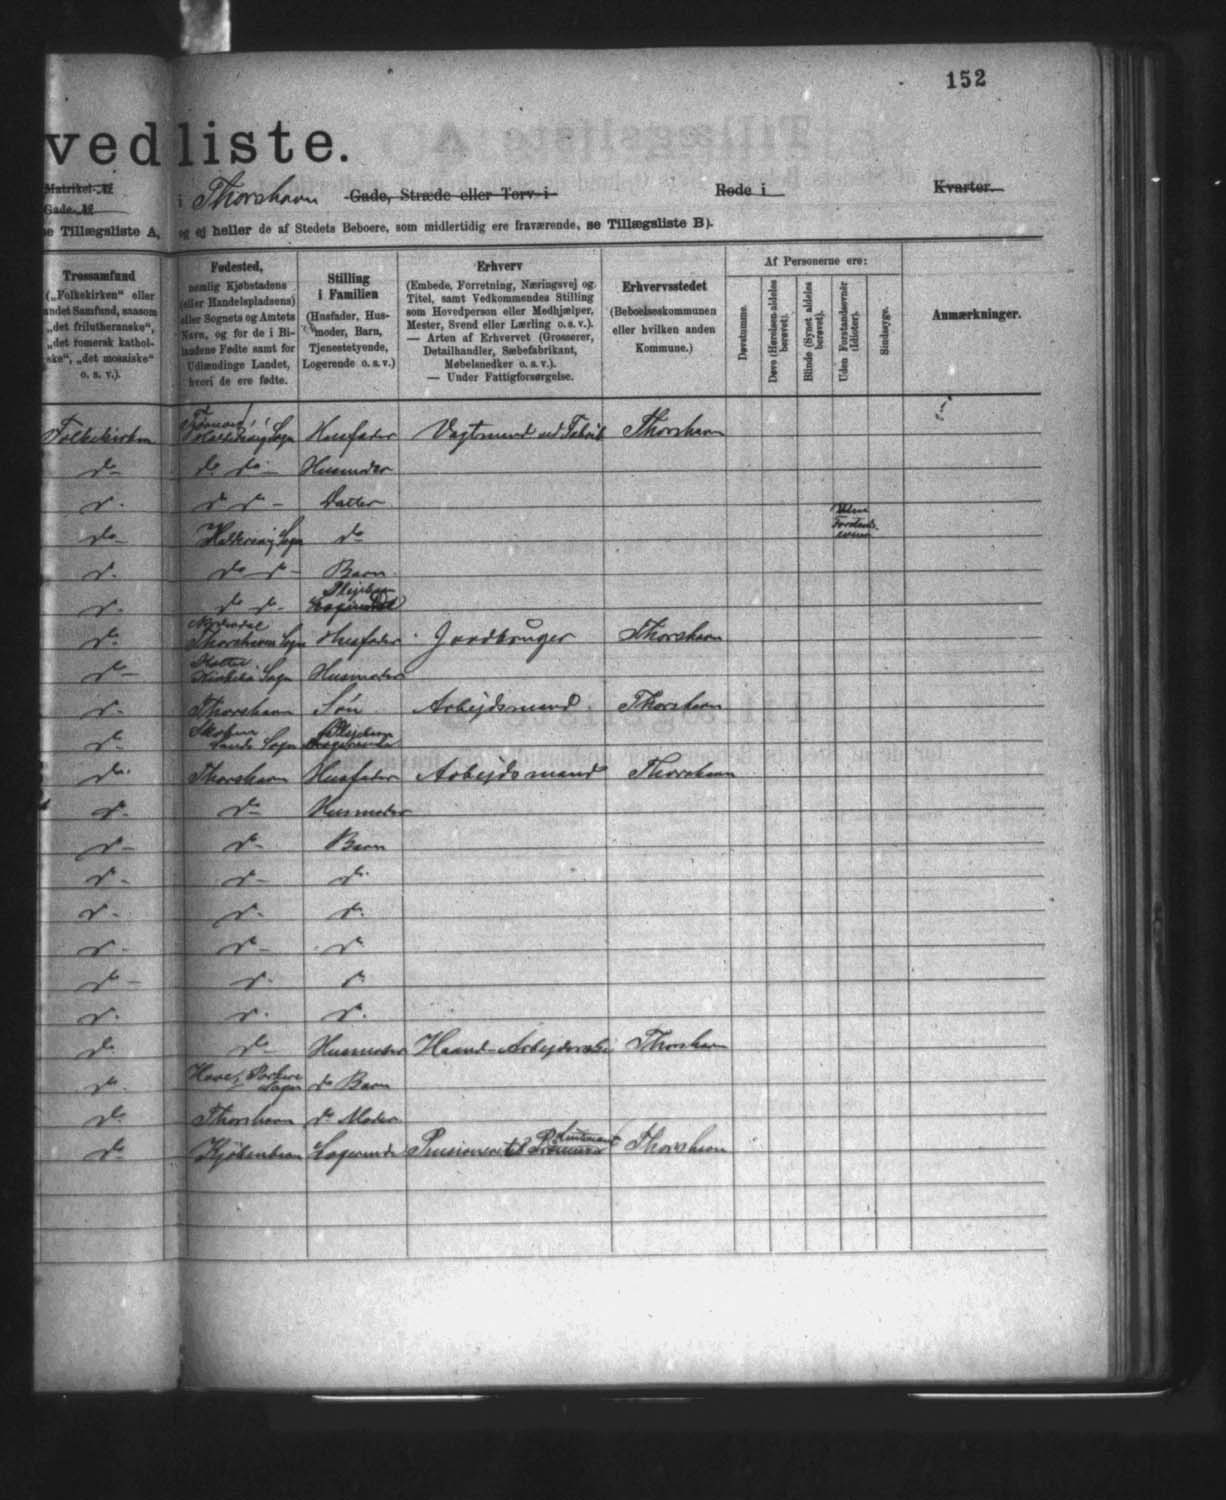 152
vedliste.
Matrikel-№
Gade-№
i Thorshavn Gade, Stræde eller Torv i Rode i Kvarter.
e Tillægsliste A, og ej heller de af Stedets Beboere, som midlertidig ere fraværende, se Tillægsliste B).
Trossamfund
(„Folkekirken“ eller
andet Samfund, saasom
„det frilutheranske“,
„det romersk kathol-
ske“, „det mosaiske“
o. s. v.).
Fødested,
nemlig Kjøbstadens
(eller Handelspladsens)
eller Sognets og Amtets
Navn, og for de i Bi-
landene Fødte samt for
Udlændinge Landet,
hvori de ere fødte.
Stilling
i Familien
(Husfader, Hus-
moder, Barn,
Tjenestetyende,
Logerende o. s. v.)
Erhverv
(Embede, Forretning, Næringsvej og
Titel, samt Vedkommendes Stilling
som Hovedperson eller Medhjælper,
Mester, Svend eller Lærling o. s. v.).
— Arten af Erhvervet (Grosserer,
Detailhandler, Sæbefabrikant,
Møbelsnedker o. s. v.).
— Under Fattigforsørgelse.
Erhvervsstedet
(Beboelseskommunen
eller hvilken anden
Kommune.)
Af Personerne ere:
Døvstumme.
Døve (Hørelsen aldeles
berøvet).
Blinde (Synet aldeles
berøvet).
Uden Forstandsevner
(Idioter).
Sindssyge.
Anmærkninger.
Folkekirken Sogn Husfader Vagtmand ved Fabrik Thorshavn
do do do Husmoder
do do do Datter
do Sogn do Uden Forstandsevner
do do do Barn
do do do Plejebarn
do Thorshavn Sogn Husfader Jordbruger Thorshavn
do Sogn Husmoder
do Thorshavn Søn Arbejdsmand Thorshavn
do Sands Sogn Plejebarn
do Thorshavn Husfader Arbejdsmand Thorshavn
do do Husmoder
do do Barn
do do do
do do do
do do do
do do do
do do do
do do Husmoder Haand-Arbejderske Thorshavn
do Sogn do Barn
do Thorshavn do Moder
do Kjøbenhavn Logerende Thorshavn